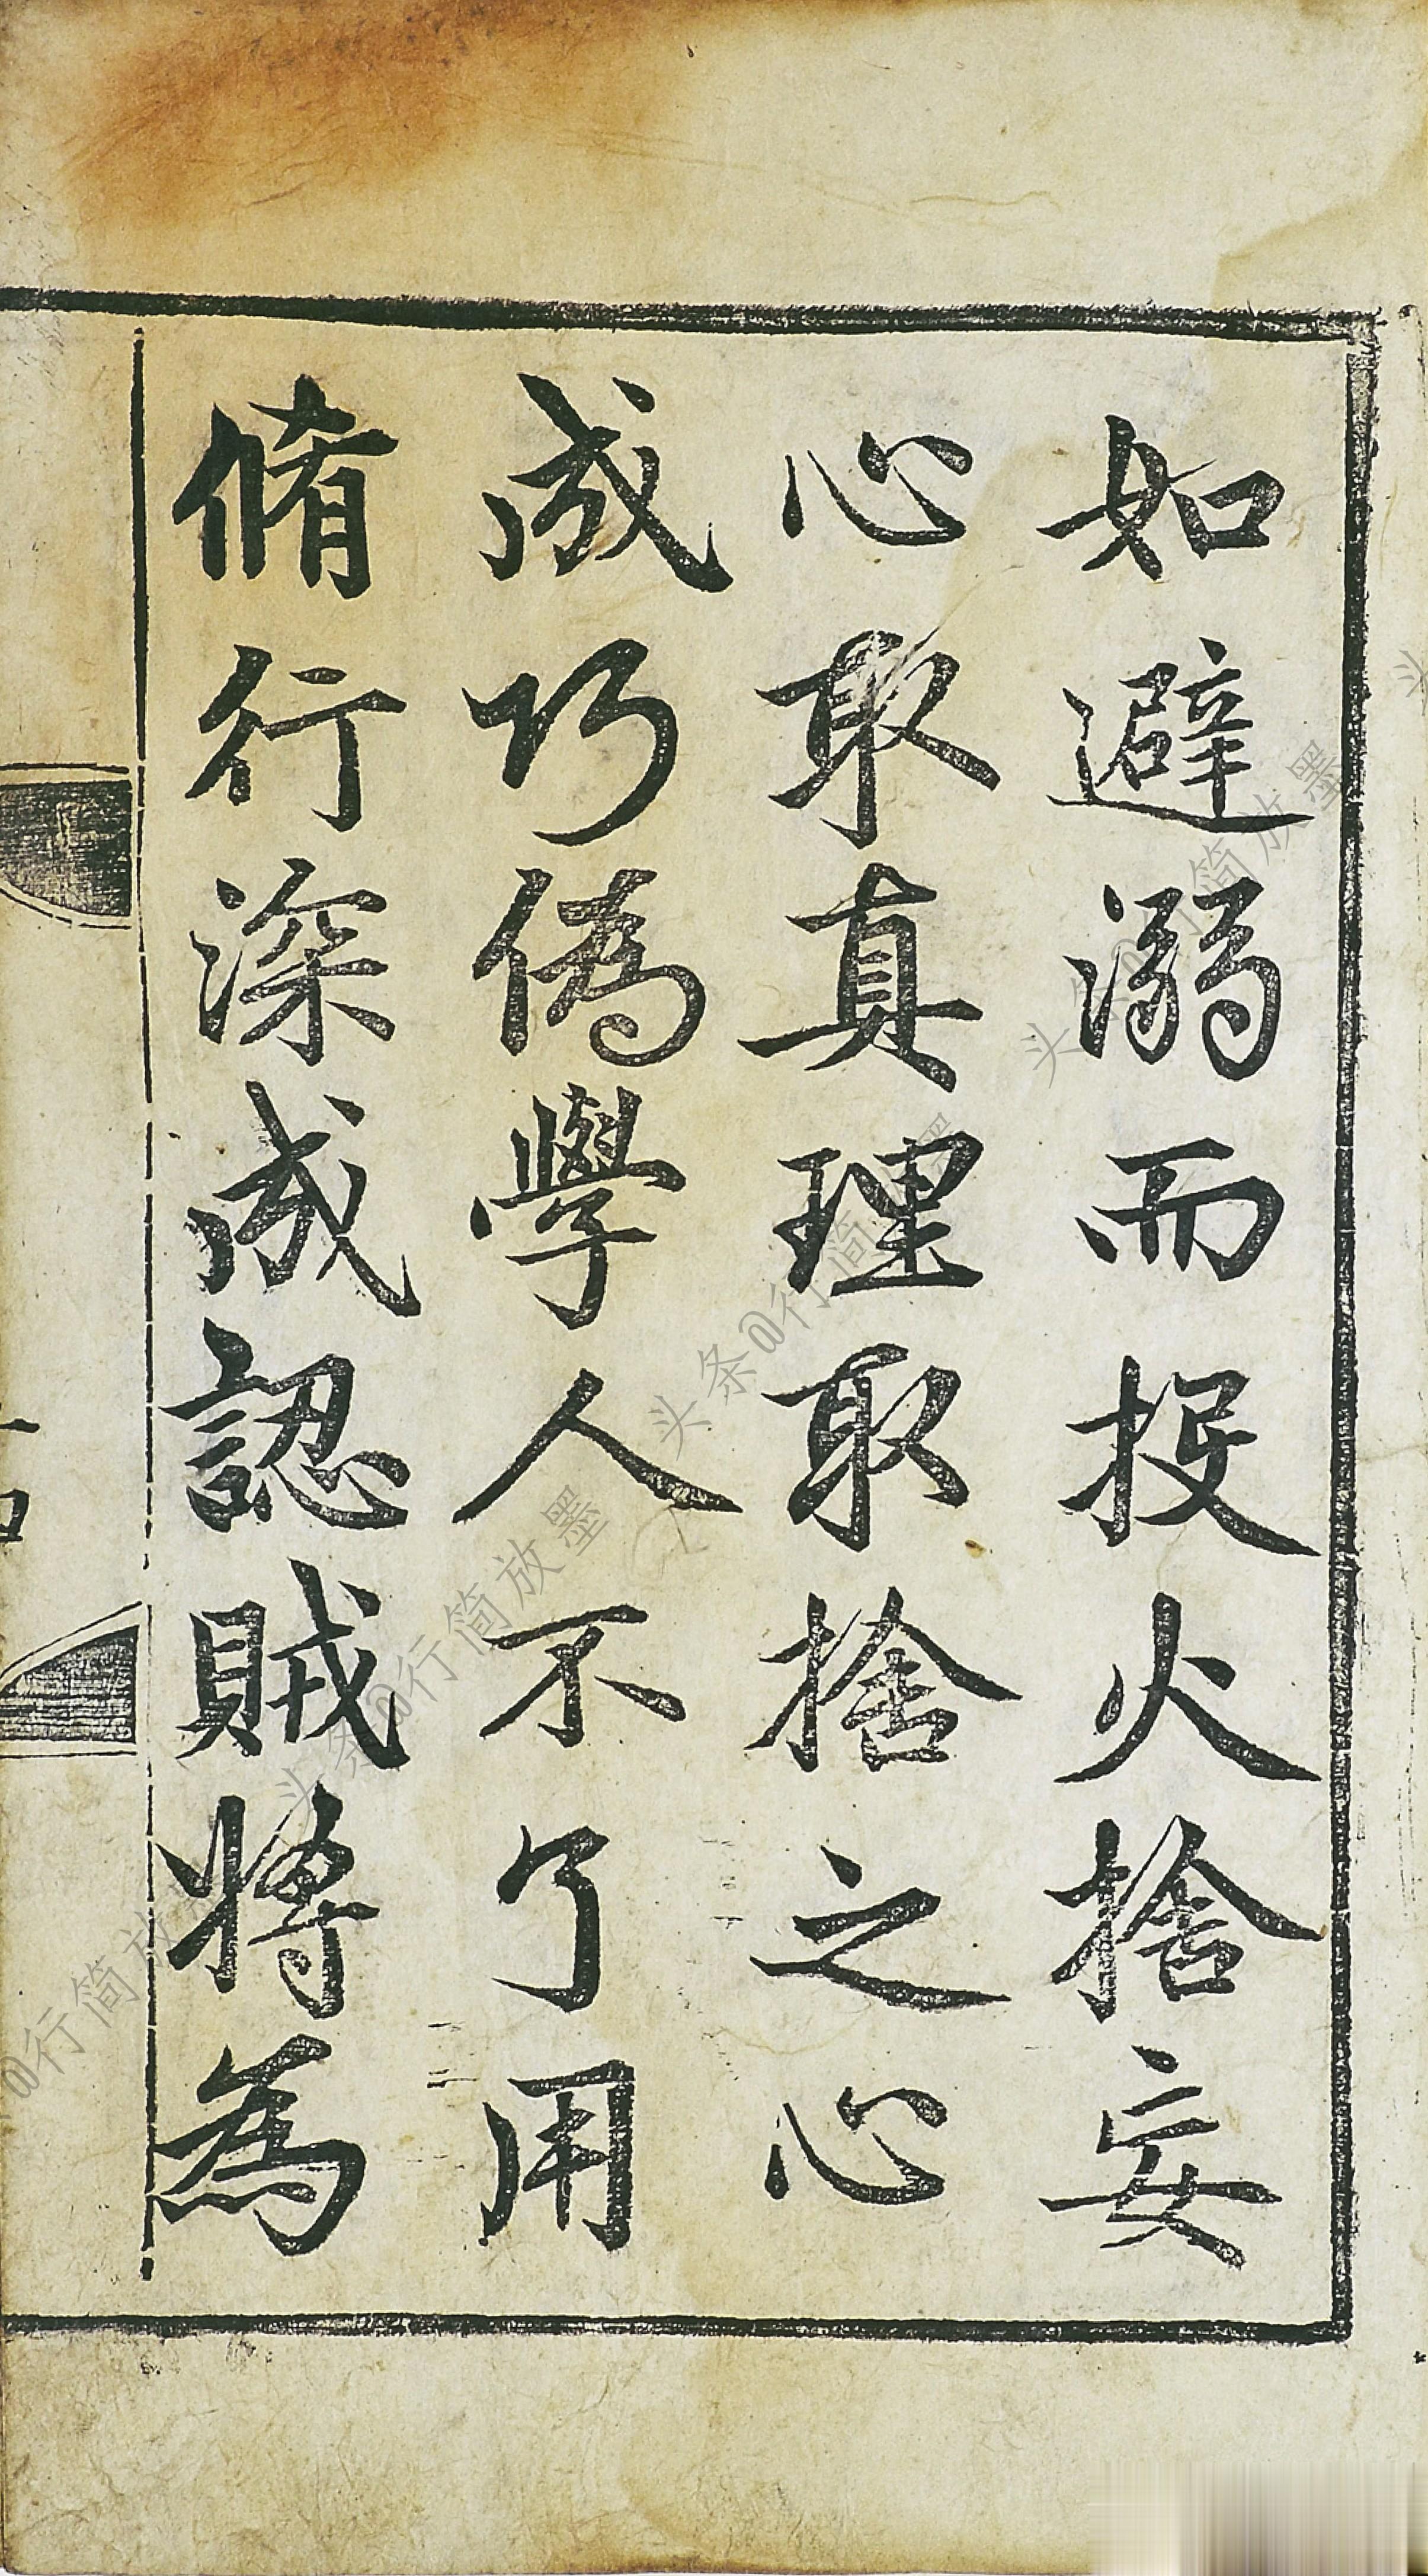 如避溺而投火捨妄
心取真理取捨之心
成巧偽學人不了用
脩行深成認賊將為
头条@行简放墨
头条@行简放墨
头条@行简放墨
@行简放墨